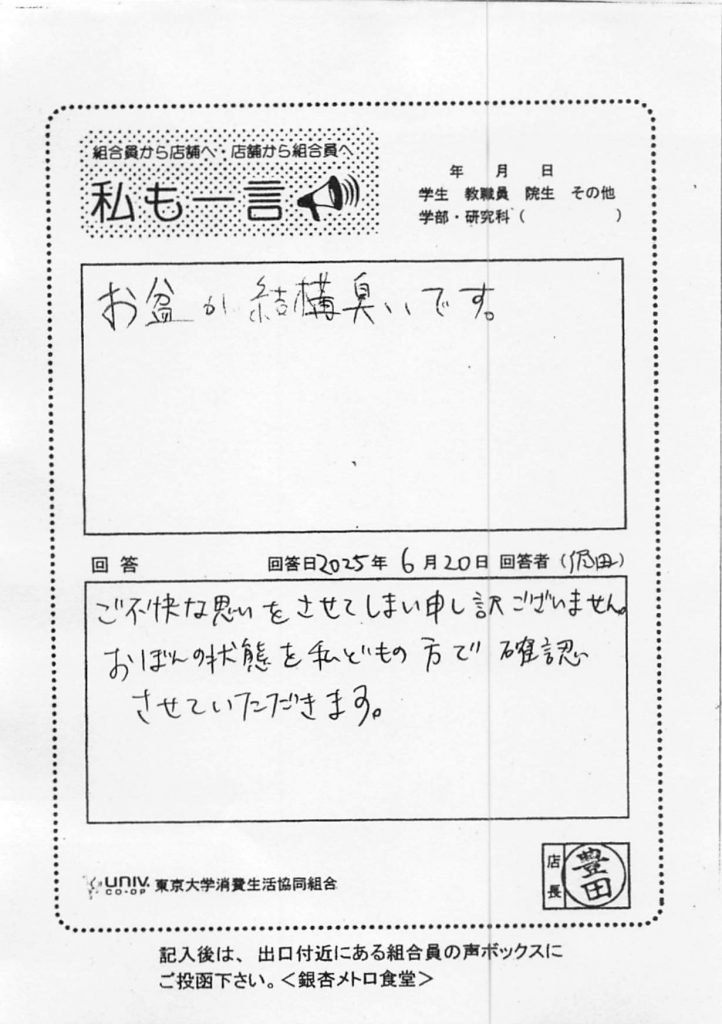 組合員から店舗へ・店舗から組合員へ
私も一言
年 月 日
学生 教職員 院生 その他
学部・研究科( )
お盆が結構臭いです。
回答 回答日2025年6月20日 回答者( )
ご不快な思いをさせてしまい申し訳ございません。
おぼんの状態を私どもの方で確認
させていただきます。
UNIV. CO-OP 東京大学消費生活協同組合
店長 豊田
記入後は、出口付近にある組合員の声ボックスに
ご投函下さい。<銀杏メトロ食堂>